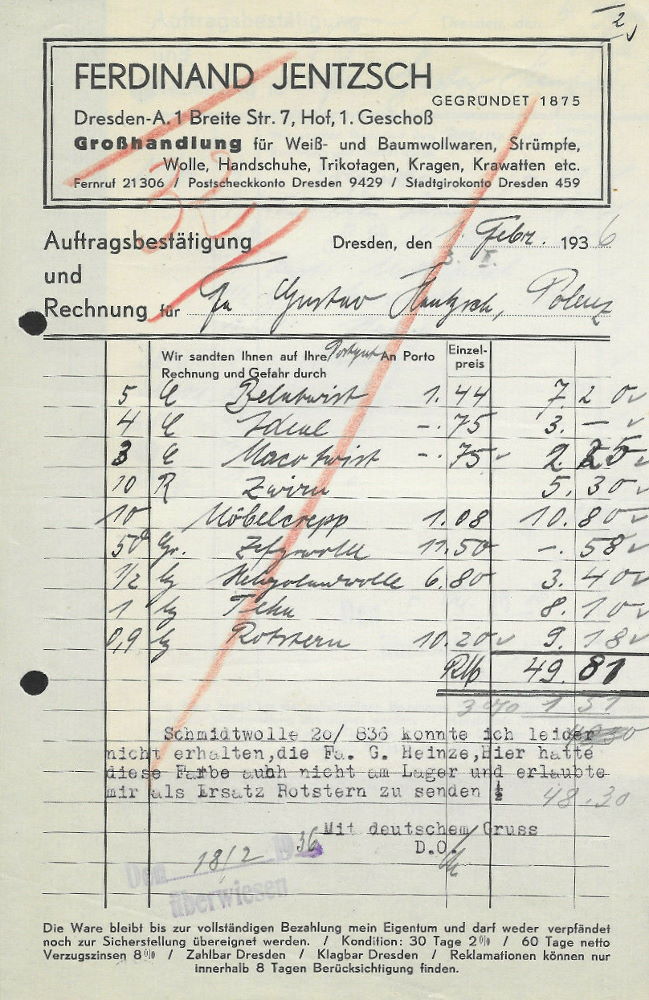 2
FERDINAND JENTZSCH
GEGRÜNDET 1875
Dresden-A. 1 Breite Str. 7, Hof, 1. Geschoß
Großhandlung für Weiß- und Baumwollwaren, Strümpfe,
Wolle, Handschuhe, Trikotagen, Kragen, Krawatten etc.
Fernruf 21306 / Postscheckkonto Dresden 9429 / Stadtgirokonto Dresden 459
Auftragsbestätigung
und
Rechnung für
Dresden, den 1. Febr. 1936
Fa Gustav Hantzsch, Polenz
Wir sandten Ihnen auf Ihre An Porto
Rechnung und Gefahr durch
Einzel-
preis
5 Beltwist 1.44 7.20
4 Ideal -.75 3.—
3 Macotwist -.75 2.25
10 R Zwirn 5.30
10 Möbelcrepp 1.08 10.80
50 Gr. 11.50 -.58
1/2 6.80 3.40
1 8.10
0,9 Rotstern 10.20 9.18
RM 49.81
3% 1 51
Schmidtwolle 20/ 836 konnte ich leider
nicht erhalten,die Fa. G. Heinze,Hier hatte
diese Farbe auch nicht am Lager und erlaubte
mir als Ersatz Rotstern zu senden
48.30
Mit deutschem Gruss
D.O.
Den 18/2 1936
überwiesen
Die Ware bleibt bis zur vollständigen Bezahlung mein Eigentum und darf weder verpfändet
noch zur Sicherstellung übereignet werden. / Kondition: 30 Tage 2% / 60 Tage netto
Verzugszinsen 8% / Zahlbar Dresden / Klagbar Dresden / Reklamationen können nur
innerhalb 8 Tagen Berücksichtigung finden.